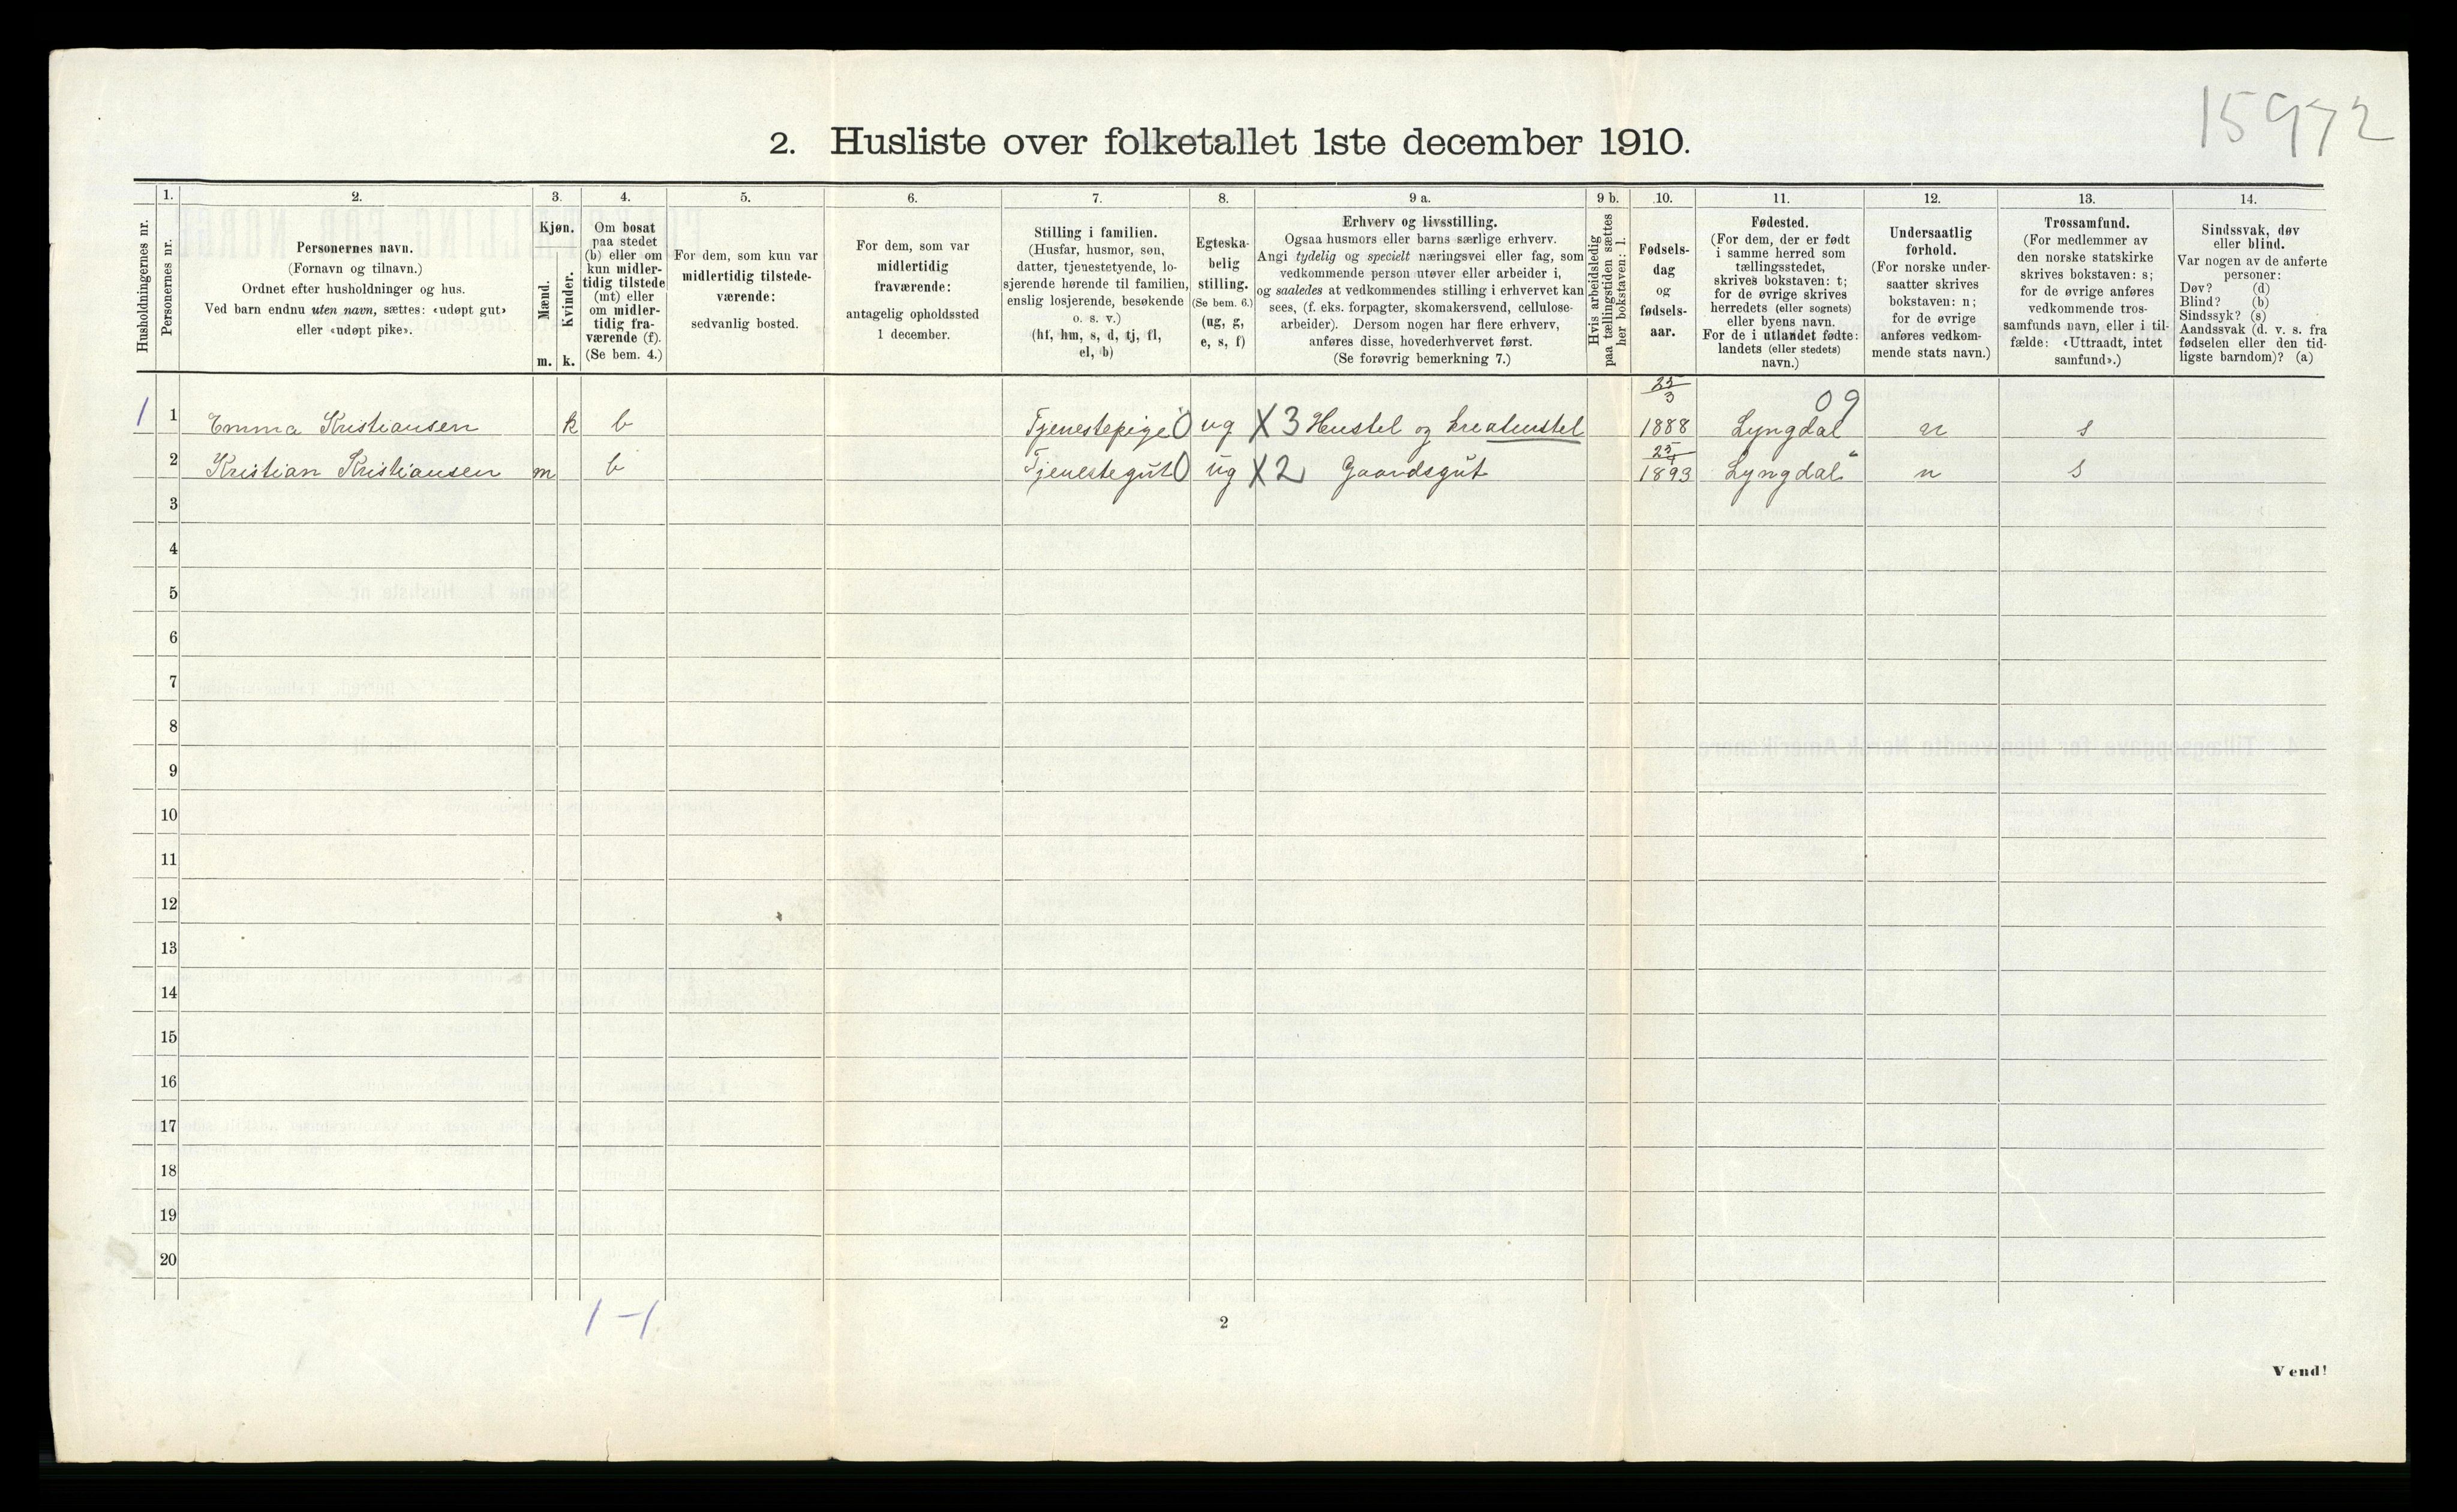 15972
2. Husliste over folketallet 1ste december 1910.
Husholdningernes nr.
1.
Personernes nr.
2.
Personernes navn.
(Fornavn og tilnavn.)
Ordnet efter husholdninger og hus.
Ved barn endnu uten navn, sættes: «udøpt gut»
eller «udøpt pike».
3.
Kjøn.
Mænd.
Kvinder.
m. k.
4.
Om bosat
paa stedet
(b) eller om
kun midler-
tidig tilstede
(mt) eller
om midler-
tidig fra-
værende (f).
(Se bem. 4.)
5.
For dem, som kun var
midlertidig tilstede-
værende:
sedvanlig bosted.
6.
For dem, som var
midlertidig
fraværende:
antagelig opholdssted
1 december.
7.
Stilling i familien.
(Husfar, husmor, søn,
datter, tjenestetyende, lo-
sjerende hørende til familien,
enslig losjerende, besøkende
o. s. v.)
(hf, hm, s, d, tj, fl,
el, b)
8.
Egteska-
belig
stilling.
(Se bem. 6.)
(ug, g,
e, s, f)
9 a.
Erhverv og livsstilling.
Ogsaa husmors eller barns særlige erhverv.
Angi tydelig og specielt næringsvei eller fag, som
vedkommende person utøver eller arbeider i,
og saaledes at vedkommendes stilling i erhvervet kan
sees, (f. eks. forpagter, skomakersvend, cellulose-
arbeider). Dersom nogen har flere erhverv,
anføres disse, hovederhvervet først.
(Se forøvrig bemerkning 7.)
9 b.
Hvis arbeidsledig
paa tællingstiden sættes
her bokstaven: l.
10.
Fødsels-
dag
og
fødsels-
aar.
11.
Fødested.
(For dem, der er født
i samme herred som
tællingsstedet,
skrives bokstaven: t;
for de øvrige skrives
herredets (eller sognets)
eller byens navn.
For de i utlandet fødte:
landets (eller stedets)
navn.)
12.
Undersaatlig
forhold.
(For norske under-
saatter skrives
bokstaven: n;
for de øvrige
anføres vedkom-
mende stats navn.)
13.
Trossamfund.
(For medlemmer av
den norske statskirke
skrives bokstaven: s;
for de øvrige anføres
vedkommende tros-
samfunds navn, eller i til-
fælde: «Uttraadt, intet
samfund».)
14.
Sindssvak, døv
eller blind.
Var nogen av de anførte
personer:
Døv? (d)
Blind? (b)
Sindssyk? (s)
Aandssvak (d. v. s. fra
fødselen eller den tid-
ligste barndom)? (a)
25/3 09
1 1 Emma Kristiansen k b Tjenestepige 0 ug X 3 Hustel og kreaturstel 1888 Lyngdal n s
2 Kristian Kristiansen m b Tjenestegut 0 ug X 2 Gaardsgut 25/4 1893 Lyngdal " n s
3
4
5
6
7
8
9
10
11
12
13
14
15
16
17
18
19
20
1 - 1
2
Vend!